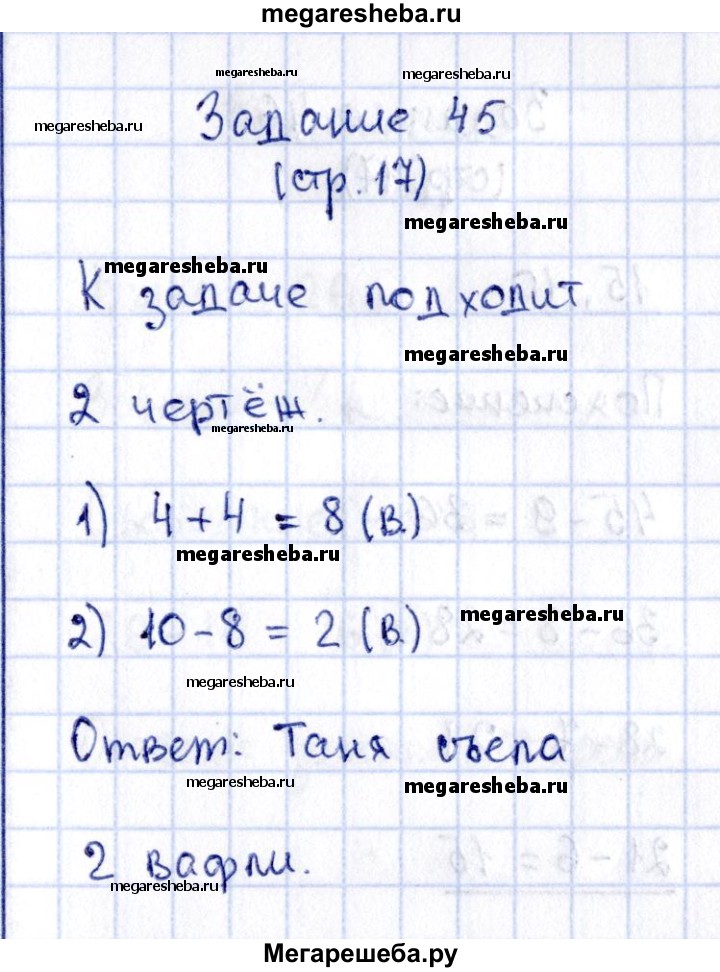 megaresheba.ru
megaresheba.ru
megaresheba.ru
megaresheba.ru
Задание 45
(стр. 17)
megaresheba.ru
megaresheba.ru
К задаче подходит
megaresheba.ru
2 чертёж.
megaresheba.ru
1) 4 + 4 = 8 (в.)
megaresheba.ru
2) 10 - 8 = 2 (в.)
megaresheba.ru
megaresheba.ru
Ответ: Таня съела
megaresheba.ru
megaresheba.ru
2 вафли.
megaresheba.ru
Мегарешеба.ру